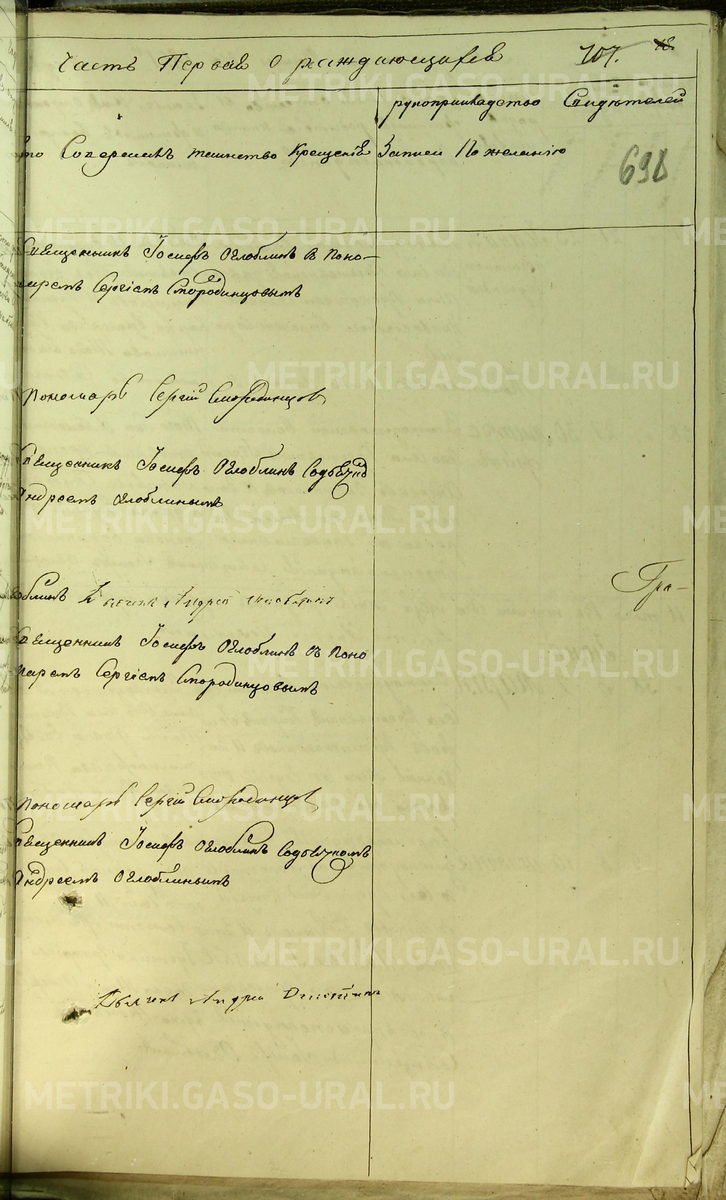 Часть Первая о раждающихся 107. 18
рукоприкладство Свидѣтелей
то Совершалъ таинство Крещенія Записи По желанію
698
Священникъ Іосифъ Оглоблинъ с Поно-
маремъ Сергіемъ Смородинцовымъ
Пономарь Сергій Смородинцов
Священникъ Іосифъ Оглоблинъ Содьячк
Андреемъ Оглоблинымъ
облинъ Дьячекъ Андрей
Гра-
Священникъ Іосифъ Оглоблинъ съ Поно
маремъ Сергіемъ Смородинцовымъ
Пономарь Сергій Смородинцов
Священникъ Іосифъ Оглоблинъ Содьячкомъ
Андреемъ Оглоблинымъ
Дьячекъ Андрей
METRIKI.GASO-URAL.RU